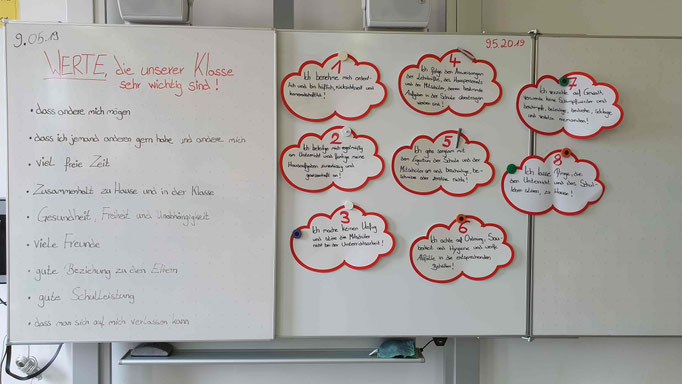 9.05.19
WERTE, die unserer Klasse
sehr wichtig sind!
• dass andere mich mögen
• dass ich jemand anderen gern habe und andere mich
• viel freie Zeit
• Zusammenhalt zu Hause und in der Klasse
• Gesundheit, Freiheit und Unabhängigkeit
• viele Freunde
• gute Beziehung zu den Eltern
• gute Schulleistung
• dass man sich auf mich verlassen kann
1
Ich benehme mich ordent-
lich und bin höflich, rücksichtsvoll und
kameradschaftlich!
2
Ich beteilige mich regelmäßig
am Unterricht und fertige meine
Hausaufgaben zuverlässig und
gewissenhaft an!
3
Ich mache keinen Unfug
und störe die Mitschüler
nicht bei der Unterrichtsarbeit!
4
Ich folge den Anweisungen
der Lehrkräfte, des Hauspersonals
und der Mitschüler, denen bestimmte
Aufgaben in der Schule übertragen
worden sind!
5
Ich gehe sorgsam mit
dem Eigentum der Schule und der
Mitschüler um und beschädige, be-
schmiere oder zerstöre nichts!
6
Ich achte auf Ordnung, Sau-
berkeit und Hygiene und werfe
Abfälle in die entsprechenden
Behälter!
9.5.2019
7
Ich verzichte auf Gewalt,
verwende keine Schimpfwörter und
beschimpfe, beleidige, bedrohe, schlage
und verletze niemanden!
8
Ich lasse Dinge, die
den Unterricht und das Schul-
leben stören, zu Hause!